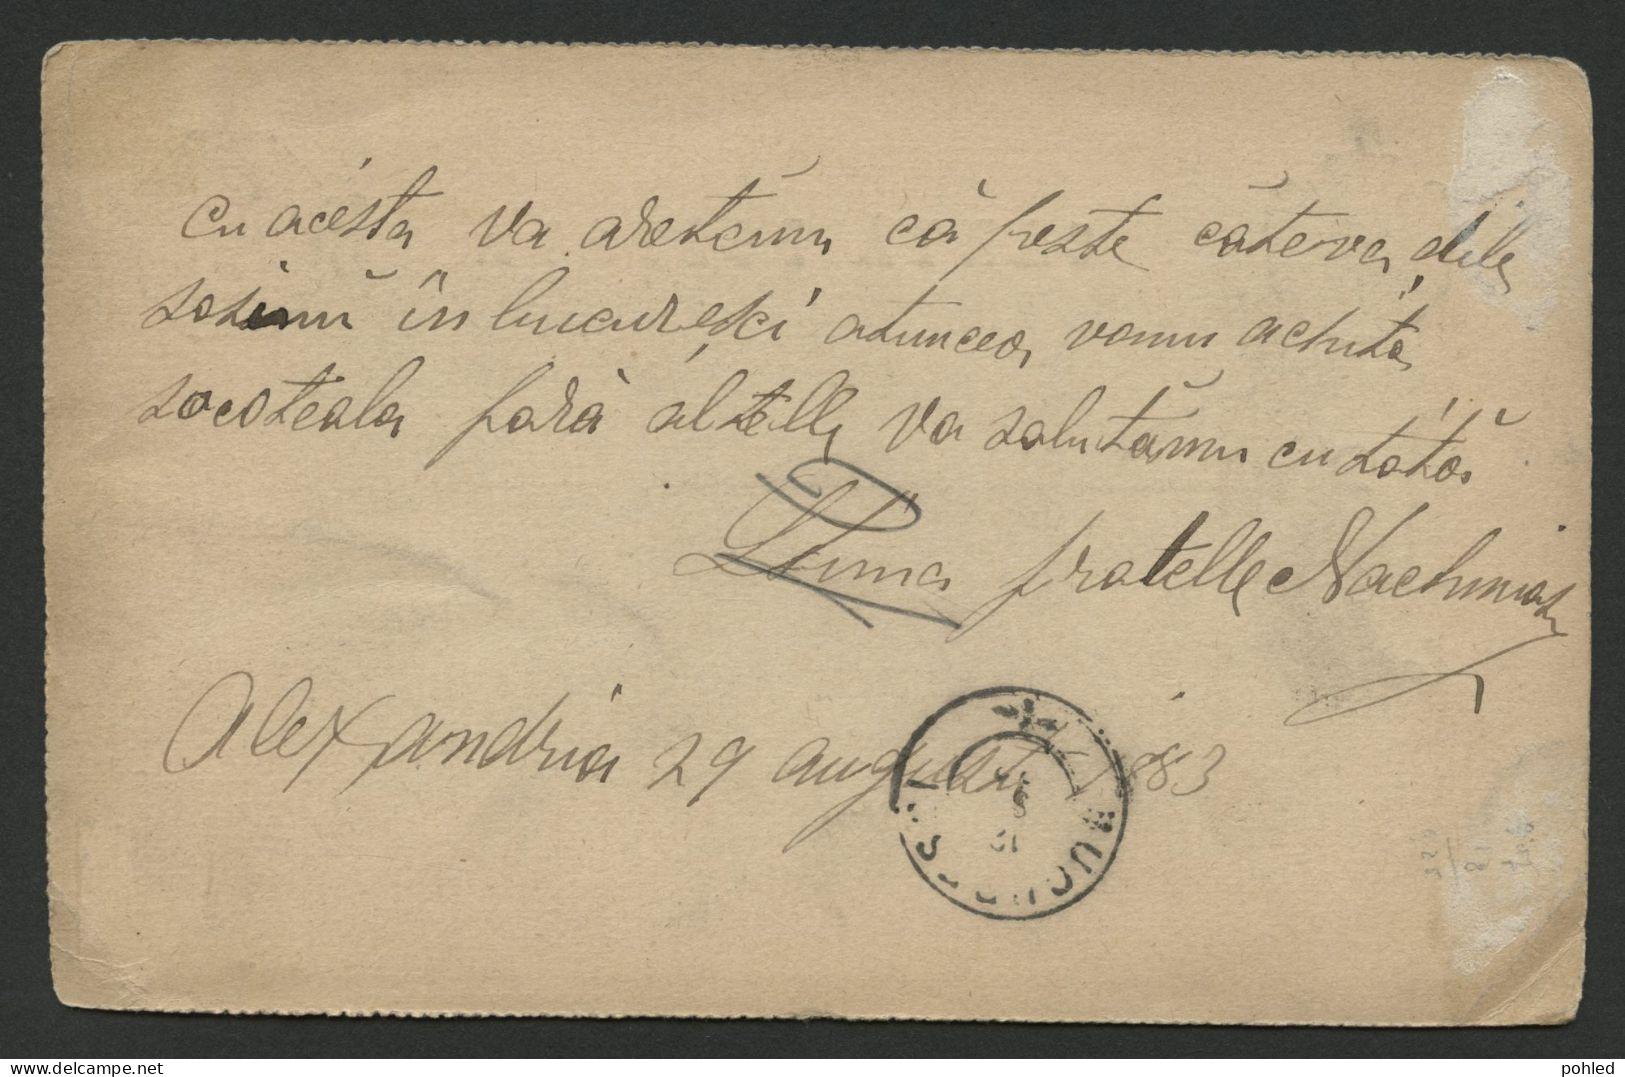 cu acésta va aretămu că peste căteva dile
sosimŭ în bucuresci atuncea vomu achita
socoteala fără altelle va salutămu cu totă
Stima fratelle Nachmias
Alexandria 29 august 1883
BUCURESCI
pohled